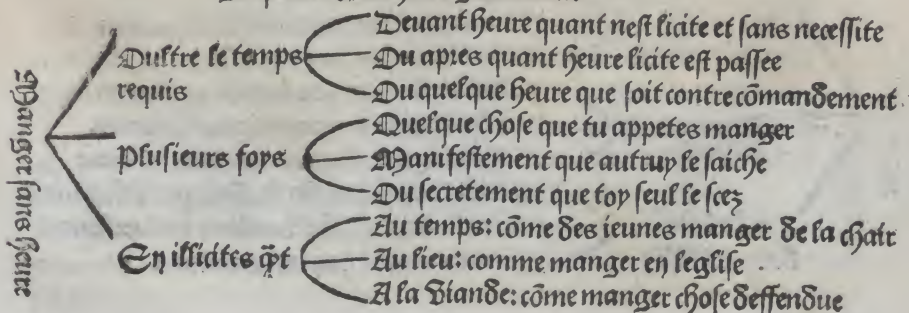 Manger sans heure
Oultre le temps
requis
Deuant heure quant nest licite et sans necessite
Ou apres quant heure licite est passee
Ou quelque heure que soit contre cōmandement
Plusieurs foys
Quelque chose que tu appetes manger
Manifestement que autruy le saiche
Ou secretement que toy seul le scez
En illicites q̄t
Au temps: cōme des ieunes manger de la chair
Au lieu: comme manger en leglise.
A la viande: cōme manger chose deffendue